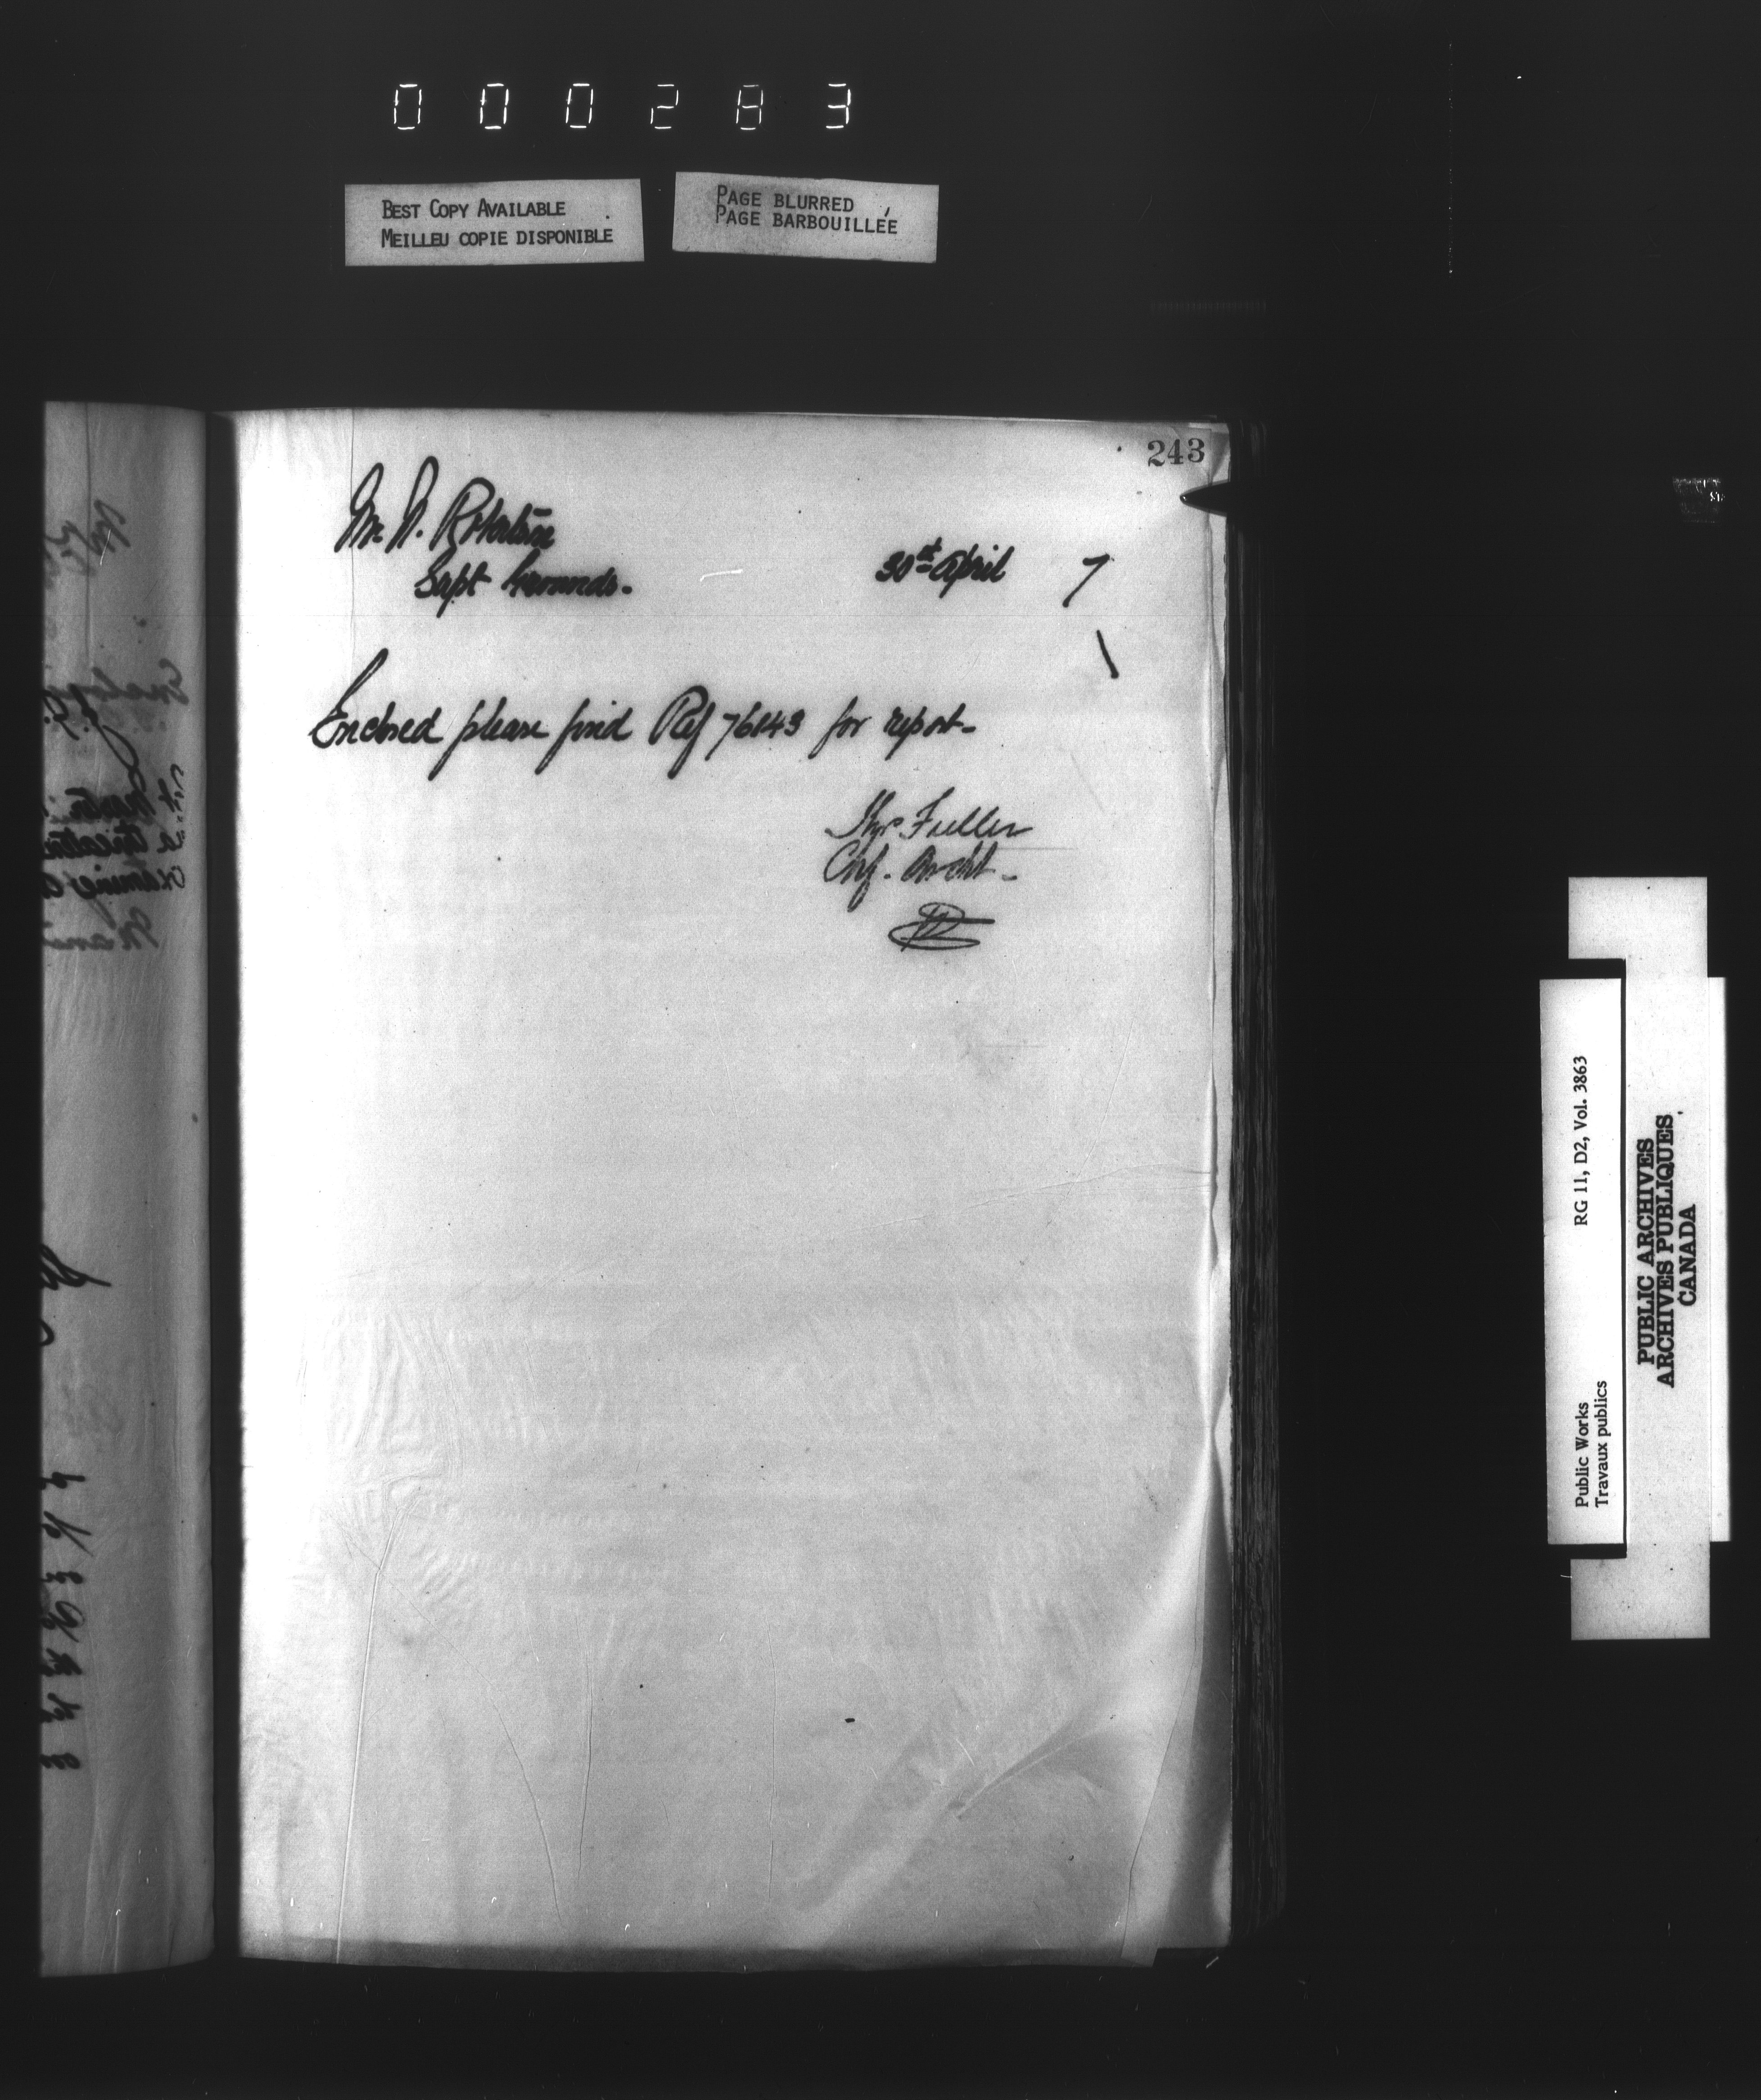 000283
BEST COPY AVAILABLE
MEILLEU COPIE DISPONIBLE
PAGE BLURRED
PAGE BARBOUILLÉE
243
Mr. N. Robertson
Supt Grounds.
30st April 7
Enclosed please find Ref 76143 for report-
Thos Fuller
Chf. Archt.
RG 11, D2, Vol. 3863
Public Works
Travaux publics
PUBLIC ARCHIVES
ARCHIVES PUBLIQUES
CANADA